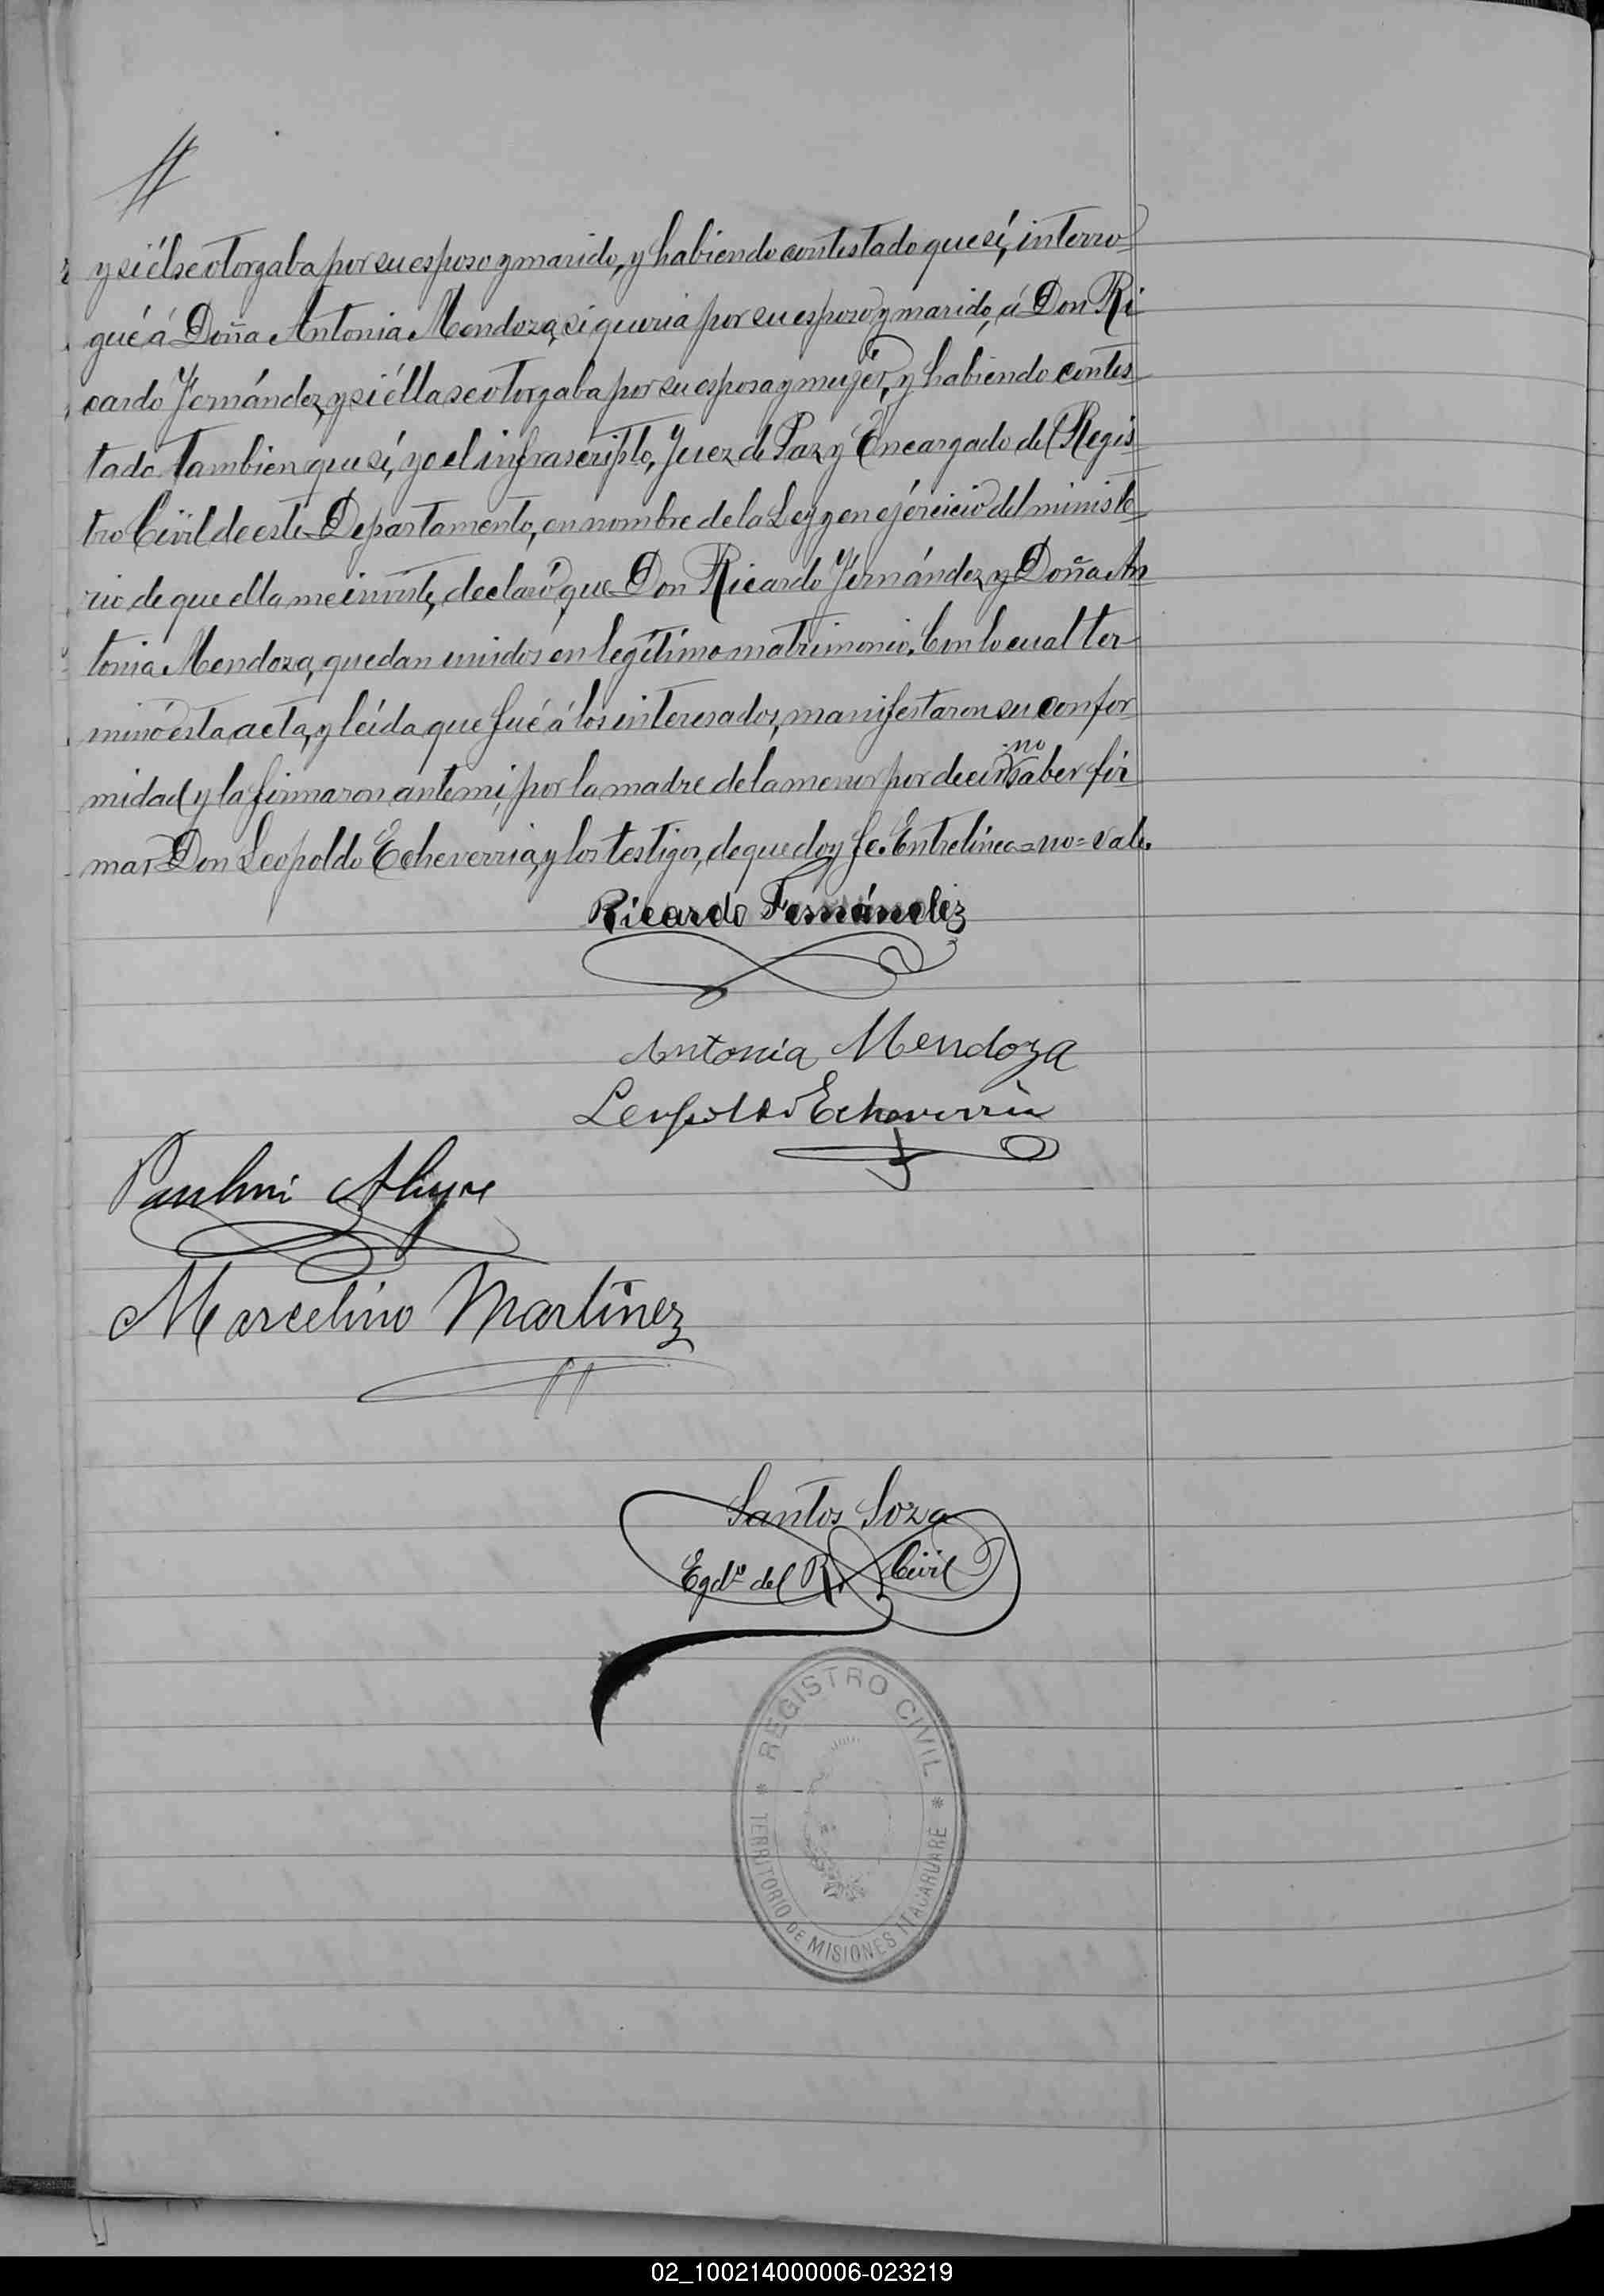 y si él se otorgaba por su esposo y marido, y habiendo contestado que sí, interro
gué á Doña Antonia Mendoza, si queria por su esposo y marido, á Don Ri
cardo Fernández, y si élla se otorgaba por su esposa y mujer, y habiendo contes
tado tambien que sí, yo el infrascripto, Juez de Paz y Encargado del Regis
tro Civil de este Departamento, en nombre de la Ley y en ejércicio del ministe
rio de que ella me inviste, declaró que Don Ricardo Fernández y Doña An
tonia Mendoza, quedan unidos en legítimo matrimonio. Con lo cual ter
minó ésta acta, y leída que fué á los interesados, manifestaron su confor
no
midad y la firmaron ante mi, por la madre de la menor por decir saber fir
mar Don Leopoldo Echeverria, y los testigos, de que doy fe. Entrelínea=no=vale.
Ricardo Fernández
Antonia Mendoza
Leopoldo Echeverria
Marcelino Martínez
Santos Soza
Egdo. del R. Civil
REGISTRO CIVIL
TERRITORIO DE MISIONES ITACARUARE
02_100214000006-023219